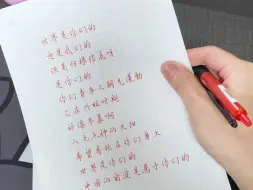 世界是你们的
也是我们的
但是归根结底
是你们的
你们青年人朝气蓬勃
正在兴旺时期
好像早晨
八九点钟的太阳
希望寄托在你们身上
世界是你们的
中国的前途是属于你们的